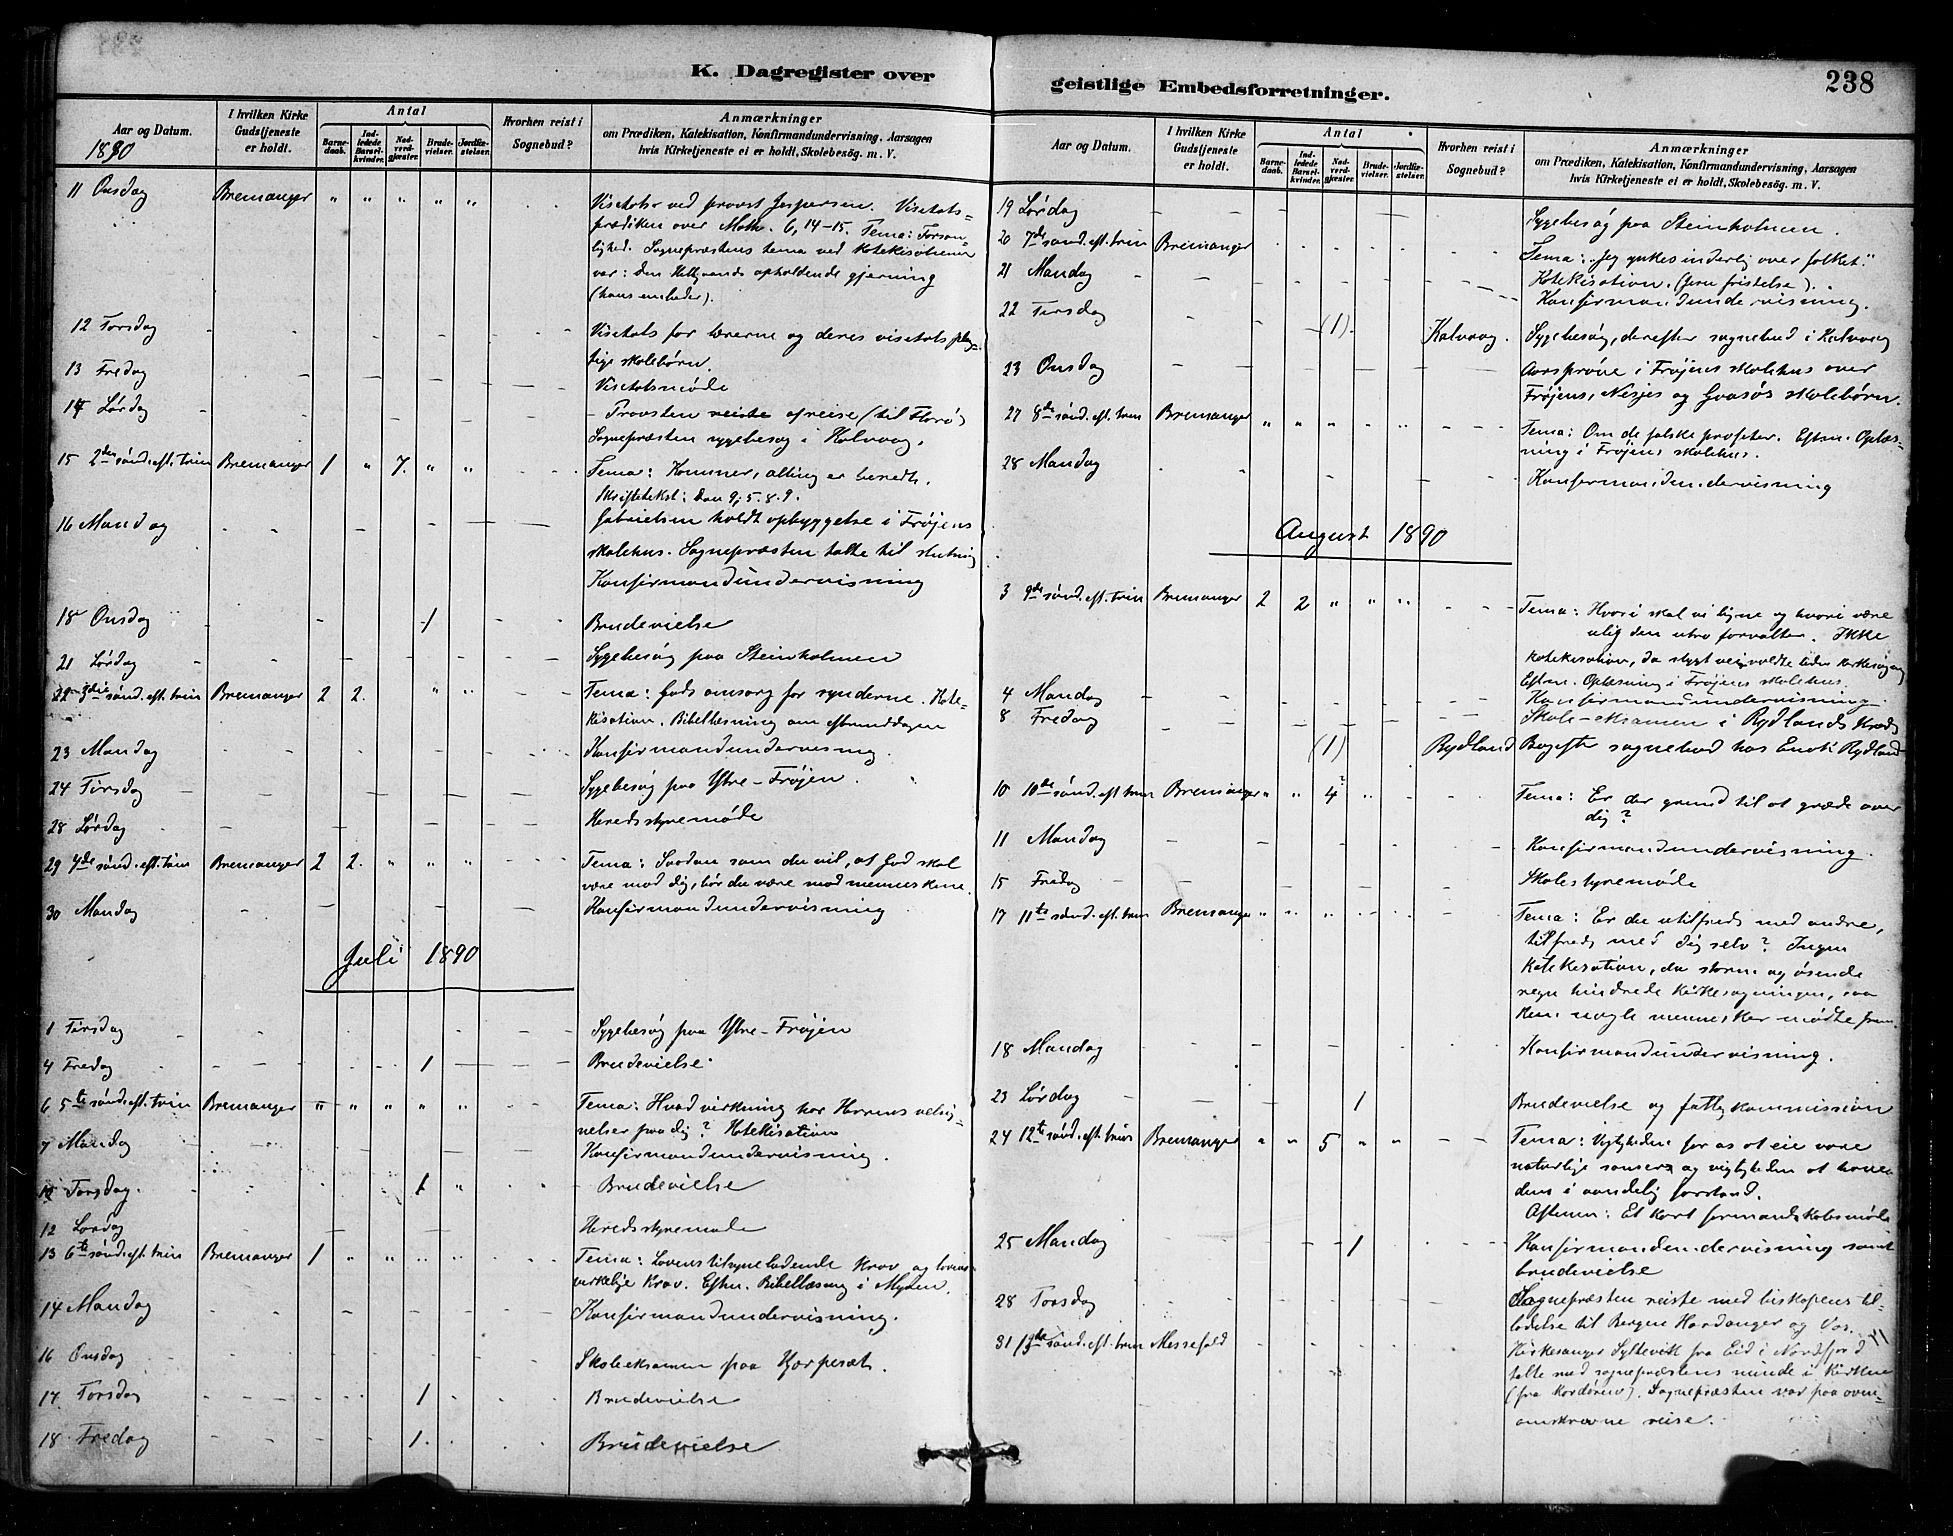 238
K. Dagregister over
geistlige Embedsforretninger.
Aar og Datum.
I hvilken Kirke Gudstjeneste er holdt.
Antal
Barnedaab.
Indledede Barselkvinder.
Nadverdgjæster.
Brudevielser.
Jordfæstelser.
Hvorhen reist i Sognebud?
Anmærkninger
om Prædiken, Katekisation, Konfirmandundervisning, Aarsagen
hvis Kirketjeneste ei er holdt, Skolebesög. m. V.
1890
11 Onsdag Bremanger " " " " " Visitats ved provst Jespersen. Visitats-
prædiken over Math. 6, 14-15. Tema: Forson-
lighed. Sognepræstens tema ved Katekisationen
var: den Helligaands opholdende gjerning
(hans embeder).
12 Torsdag Visitats for lærerne og deres visitatsplig-
tige skolebørn.
13 Fredag Visitatsmøde
14 Lørdag Provsten reiste (til Florø)
Sognepræsten sygebesøg i Kalvaag.
15 2den sønd. eft. trin Bremanger 1 " 7 " " Tema: Kommer, alting er beredt.
Skriftetekst: Dan 9, 5. 8. 9.
16 Mandag Gabrielsen holdt opbyggelse i Frøjens
skolehus. Sognepræsten talte til slutning
Konfirmandundervisning
18 Onsdag 1 Brudevielse
21 Lørdag Sygebesøg paa Steinholmen
22 3die sønd. eft. trin Bremanger 2 2 " " Tema: Guds omsorg for synderne. Kate-
kisation. Bibellæsning om eftermiddagen
23 Mandag Konfirmandundervisning
24 Tirsdag Sygebesøg paa Ytre-Frøjen
28 Lørdag Heredsstyremøde
29 4de sønd. eft. trin Bremanger 2 2 " " " Tema: Saadan som du vil, at Gud skal
være mod dig, bør du være mod menneskene.
30 Mandag Konfirmandundervisning
Juli 1890
1 Tirsdag Sygebesøg paa Ytre-Frøjen
4 Fredag 1 Brudevielse
6 5te sønd. eft. trin Bremanger " " " " " Tema: Hvad virkning har Herrens velsig-
nelser paa dig? Katekisation
7 Mandag Konfirmandundervisning.
10 Torsdag 1 " Brudevielse
12 Lørdag Heredsstyremøde
13 6te sønd. eft. trin Bremanger 1 " " " " Tema: Lovens tilsyneladende krav og lovens
virkelige krav. Eftm. Bibellæsning i
14 Mandag Konfirmandundervisning.
16 Onsdag Skoleeksamen paa
17 Torsdag 1 Brudevielse
18 Fredag 1 Brudevielse
Aar og Datum.
I hvilken Kirke Gudstjeneste er holdt.
Antal
Barnedaab.
Indledede Barselkvinder.
Nadverdgjæster.
Brudevielser.
Jordfæstelser.
Hvorhen reist i Sognebud?
Anmærkninger
om Prædiken, Katekisation, Konfirmandundervisning, Aarsagen
hvis Kirketjeneste ei er holdt, Skolebesög. m. V.
19 Lørdag Sygebesøg paa Steinholmen.
20 7de sønd. eft. trin Bremanger Tema: "Jeg ynkes inderlig over folket."
Katekisation. (Jesu fristelse).
21 Mandag Konfirmandundervisning.
22 Tirsdag (1) Kalvaag. Sygebesøg, derefter sognebud i Kalvaag
23 Onsdag Aarsprøve i Frøjens skolehus over
Frøjens, Nesjes og skolebørn.
27 8de sønd. eft. trin Bremanger " " " " " Tema: Om de falske profeter. Eftm. Oplæs-
ning i Frøjens skolehus.
28 Mandag Konfirmandundervisning
August 1890
3 9de sønd. eft. trin Bremanger 2 2 " " " Tema: Hvori skal vi ligne og hvori være
ulig den utro forvalter. Ikke
katekisation, da stygt veir voldte liden kirkesøgning
Eftm. Oplæsning i Frøjens skolehus.
4 Mandag Konfirmandundervisning
8 Fredag Skole-eksamen i Rydlands kreds
(1) Rydland Bagefter sognebud hos Rydland
10 10de sønd. eft. trin Bremanger " " 4 " Tema: Er der grund til at græde over
dig?
11 Mandag Konfirmandundervisning.
15 Fredag Skolestyremøde
17 11te sønd. eft. trin Bremanger " " " " " Tema: Er du utilfreds med andre,
tilfreds med dig selv? Ingen
katekisation, da storm og øsende
regn hindrede kirkesøgningen, saa
kun nogle mennesker mødte frem.
18 Mandag Konfirmandundervisning.
23 Lørdag 1 Brudevielse og fattigkommission
24 12te sønd. eft. trin Bremanger " " 5 " " Tema: Vigtigheden for os at eie vore
naturlige sanser og vigtigheden at have
dem i aandelig forstand.
Aftenen: Et kort formandskabsmøde
25 Mandag 1 Konfirmandundervisning samt
brudevielse
28 Torsdag Sognepræsten reiste med biskopens til-
ladelse til Bergen Hardanger og Vos.
31 13de sønd. eft. trin Messefald Kirkesanger Syltevik fra Eid i Nordfjord
talte med sognepræstens minde i kirken
(fra kordøren). Sognepræsten var paa oven-
omskrevne reise.